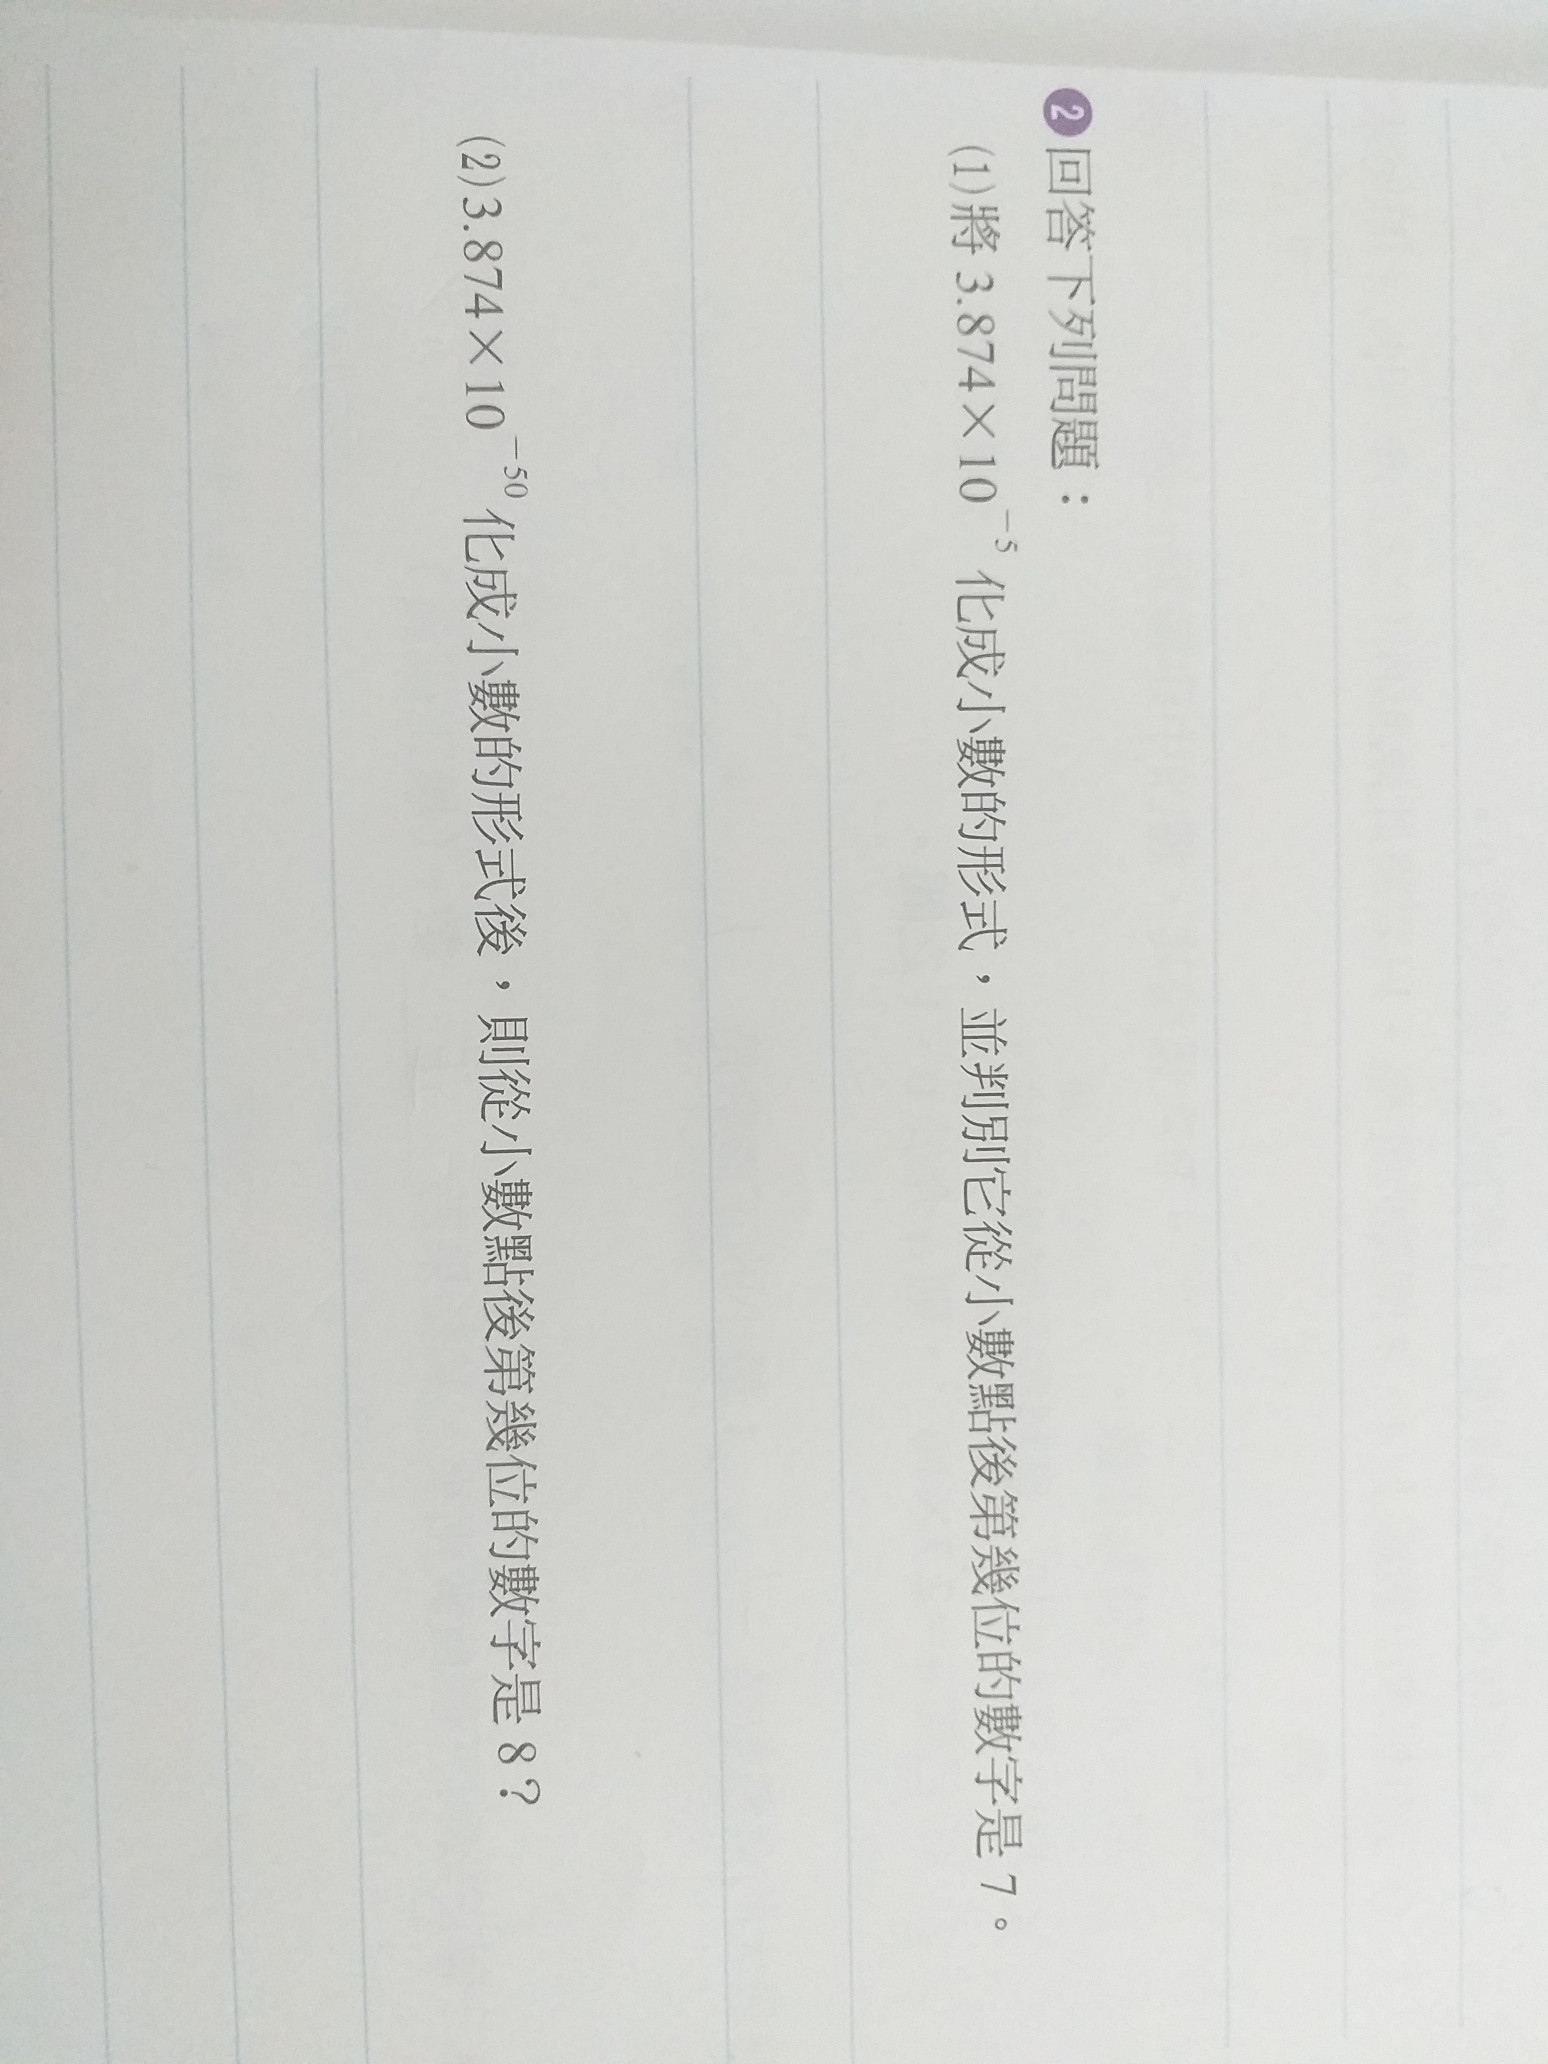 2 回答下列問題：
(1)將 3.874×10⁻⁵ 化成小數的形式，並判別它從小數點後第幾位的數字是 7。
(2)3.874×10⁻⁵⁰ 化成小數的形式後，則從小數點後第幾位的數字是 8？